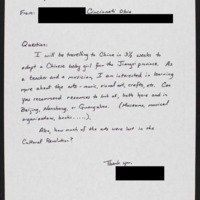 From: Cincinnati Ohio
Question:
I will be travelling to China in 3½ weeks to
adopt a Chinese baby girl for the Jiangxi province. As
a teacher and a musician, I am interested in learning
more about the arts - music, visual art, crafts, etc. Can
you recommend resources to look at, both here and in
Beijing, Nanchang, or Guangzhou. (Museums, musical
organizations, books.....).
Also, how much of the arts were lost in the
Cultural Revolution?
Thank you,